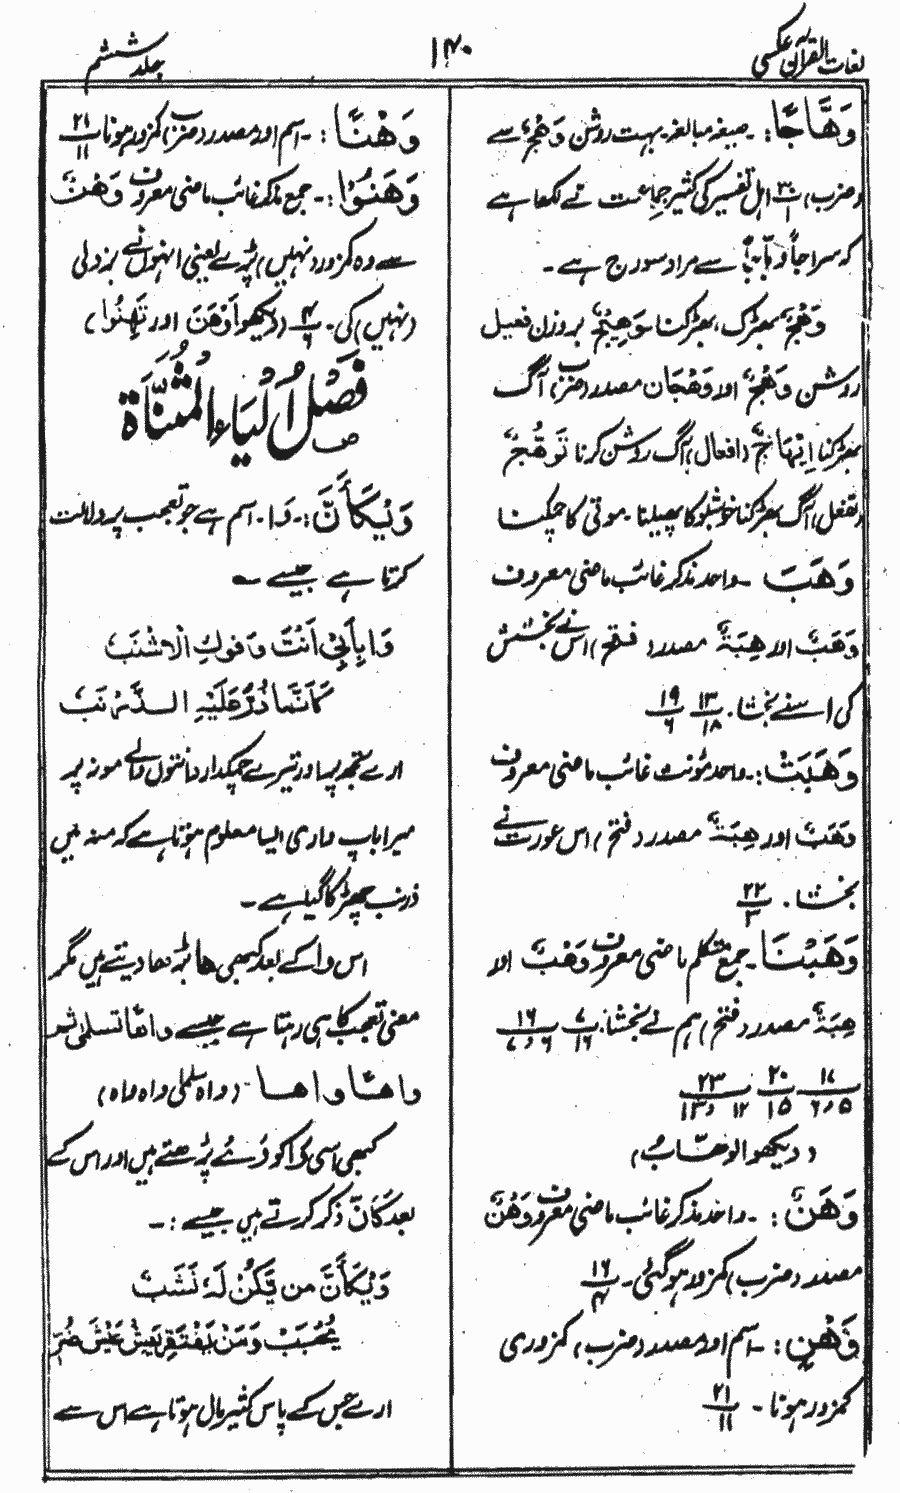 لغات القرآن عکسی
۱۴۰
جلد ششم
وَهَّاجًا: ۔ صیغہ مبالغہ۔ بہت روشن وَهْجٌ سے
(ضرب) ۳۰/۱ اہل تفسیر کی کثیر جماعت نے لکھا ہے
کہ سراجاً وہاجاً سے مراد سورج ہے ۔
وَهْجٌ بھڑک، بھڑکنا وَهِيجٌ بروزن فعیل
روشن وَهْجٌ اور وَهْجَان مصدر (ضرب) آگ
بھڑکنا اِيْهَاجٌ (افعال) آگ روشن کرنا تَوَهُّجٌ
(تفعل) آگ بھڑکنا خوشبو کا پھیلنا ۔ موتی کا چمکنا
وَهَبَ ۔ واحد مذکر غائب ماضی معروف
وَهْبٌ اور هِبَةٌ مصدر (فتح) اس نے بخشش
کی اسنے بخشا ۔ ۱۳/۱۸ ۱۹/۶
وَهَبَتْ: ۔ واحد مؤنث غائب ماضی معروف
وَهْبٌ اور هِبَةٌ مصدر (فتح) اس عورت نے
بخشا ۔ ۲۲/۳
وَهَبْنَا ۔ جمع متکلم ماضی معروف وَهْبٌ اور
هِبَةٌ مصدر (فتح) ہم نے بخشا: ۷/۱۶ ۱۶/۶ و ۷
۱۷/۵ و ۶ ۲۰/۱۵ ۲۳/۱۲ و ۱۳
(دیکھو الوهّابُ)
وَهَنَ: ۔ واحد مذکر غائب ماضی معروف وَهْنٌ
مصدر (ضرب) کمزور ہوگئی ۔ ۱۶/۴
وَهْنٍ: ۔ اسم اور مصدر (ضرب) کمزوری
کمزور ہونا ۔ ۲۱/۱۱
وَهْنًا: ۔ اسم اور مصدر (ضرب) کمزور ہونا ۲۱/۱۱
وَهَنُوْا: ۔ جمع مذکر غائب ماضی معروف وَهْنٌ
سے وہ کمزور (نہیں) پڑے یعنی انہوں نے بزدلی
(نہیں) کی ۔ ۴/۶ (دیکھو اَوْهَنَ اور تَهِنُوا)
فَصْلُ الْيَاءِ الْمُثَنَّاةِ
وَيْكَأَنَّ: ۔ وَا ۔ اسم ہے جو تعجب پر دلالت
کرتا ہے جیسے ۔
وَا بِأَبِيْ أَنْتَ وَفُوكِ الْاَشْنَبُ
كَأَنَّمَا ذُرَّ عَلَيْهِ الـزَّرْنَبُ
ارے تجھ پر اور تیرے چمکدار دانتوں والے مونہ پر
میرا باپ واری ایسا معلوم ہوتا ہے کہ منہ میں
زرنب چھڑکا گیا ہے ۔
اس وا کے بعد کبھی ها بڑھا دیتے ہیں مگر
معنی تعجب کا ہی رہتا ہے جیسے واهًا لسلمٰی ثم
واهًا واها ۔ (واہ سلمٰی واہ واہ)
کبھی اسی وا کو وَیْ پڑھتے ہیں اور اس کے
بعد كَأَنَّ ذکر کرتے ہیں جیسے : ۔
وَيْكَأَنَّ من يَّكُنْ لَهٗ نَشَبٌ
يُّحْبَبْ وَمَنْ يَفْتَقِرْ يَعِشْ عَيْشَ ضُرٍّ
ارے جس کے پاس کثیر مال ہوتا ہے اس سے